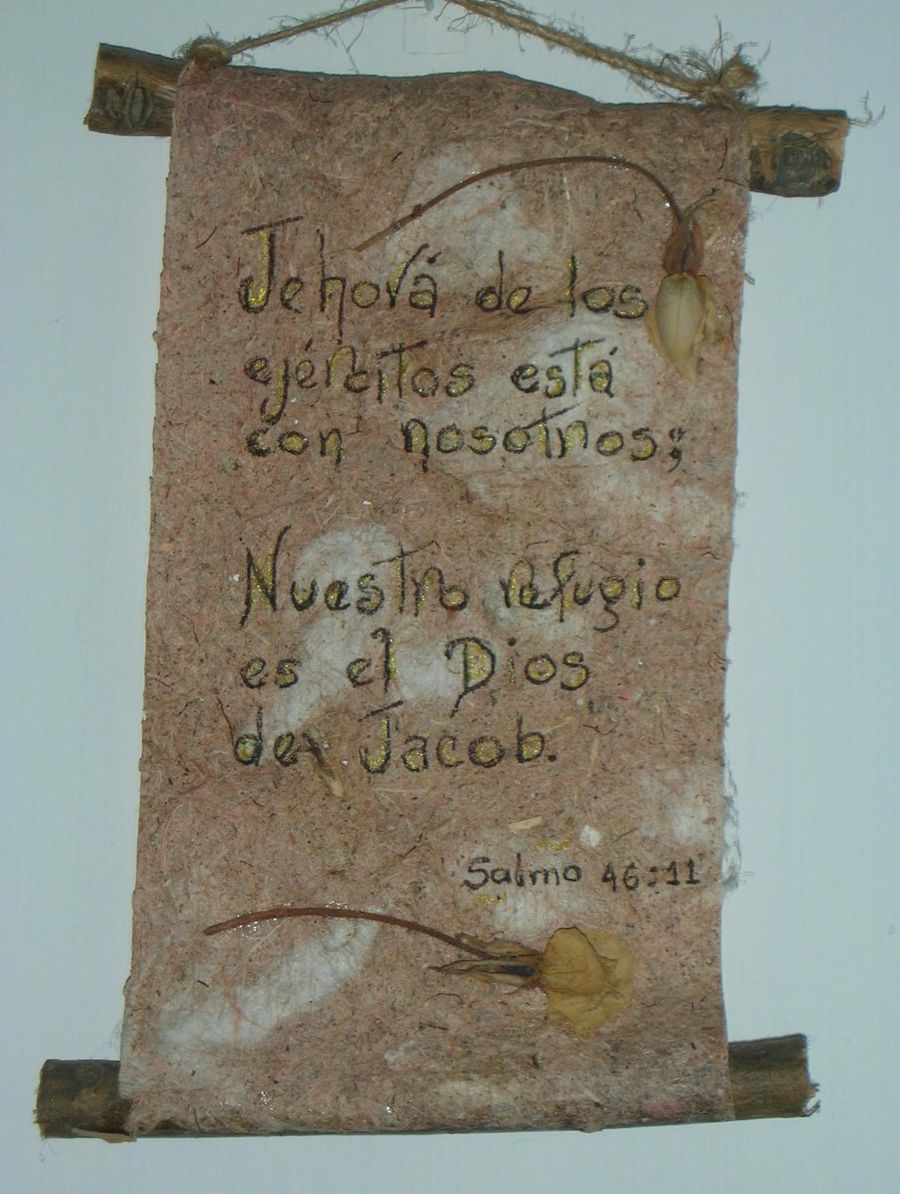 Jehová de los
ejércitos está
con nosotros;
Nuestro refugio
es el Dios
de Jacob.
Salmo 46:11